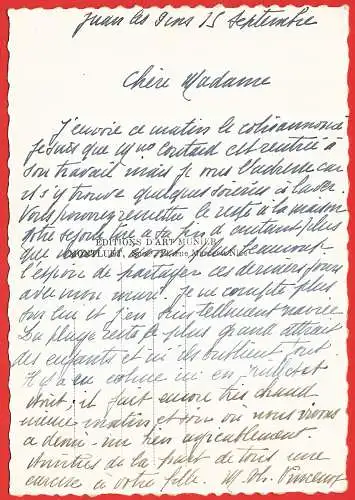 Juan les Pins 15 Septembre
Chère Madame
J'envoie ce matin le colis annoncé
je sais que Mme est rentrée à
son travail mais je vous l'adresse car
il s'y trouve quelques à laver.
Vous pouvez remettre le reste à la maison
votre séjour d'autant plus
que
ÉDITIONS D'ART MUNIER
l'espoir de partager ces derniers jours
avec mon mari. Je ne compte plus
sur lui et j'en suis tellement navrée
La plage reste le plus grand attrait
des enfants et ils oublient tout.
Il y a eu calme ici en
Août; il fait encore très chaud
même matin et soir où nous vivons
a demi-nu très agréablement.
Amitiés de la part de tous une
caresse à votre fille. M. Vincent